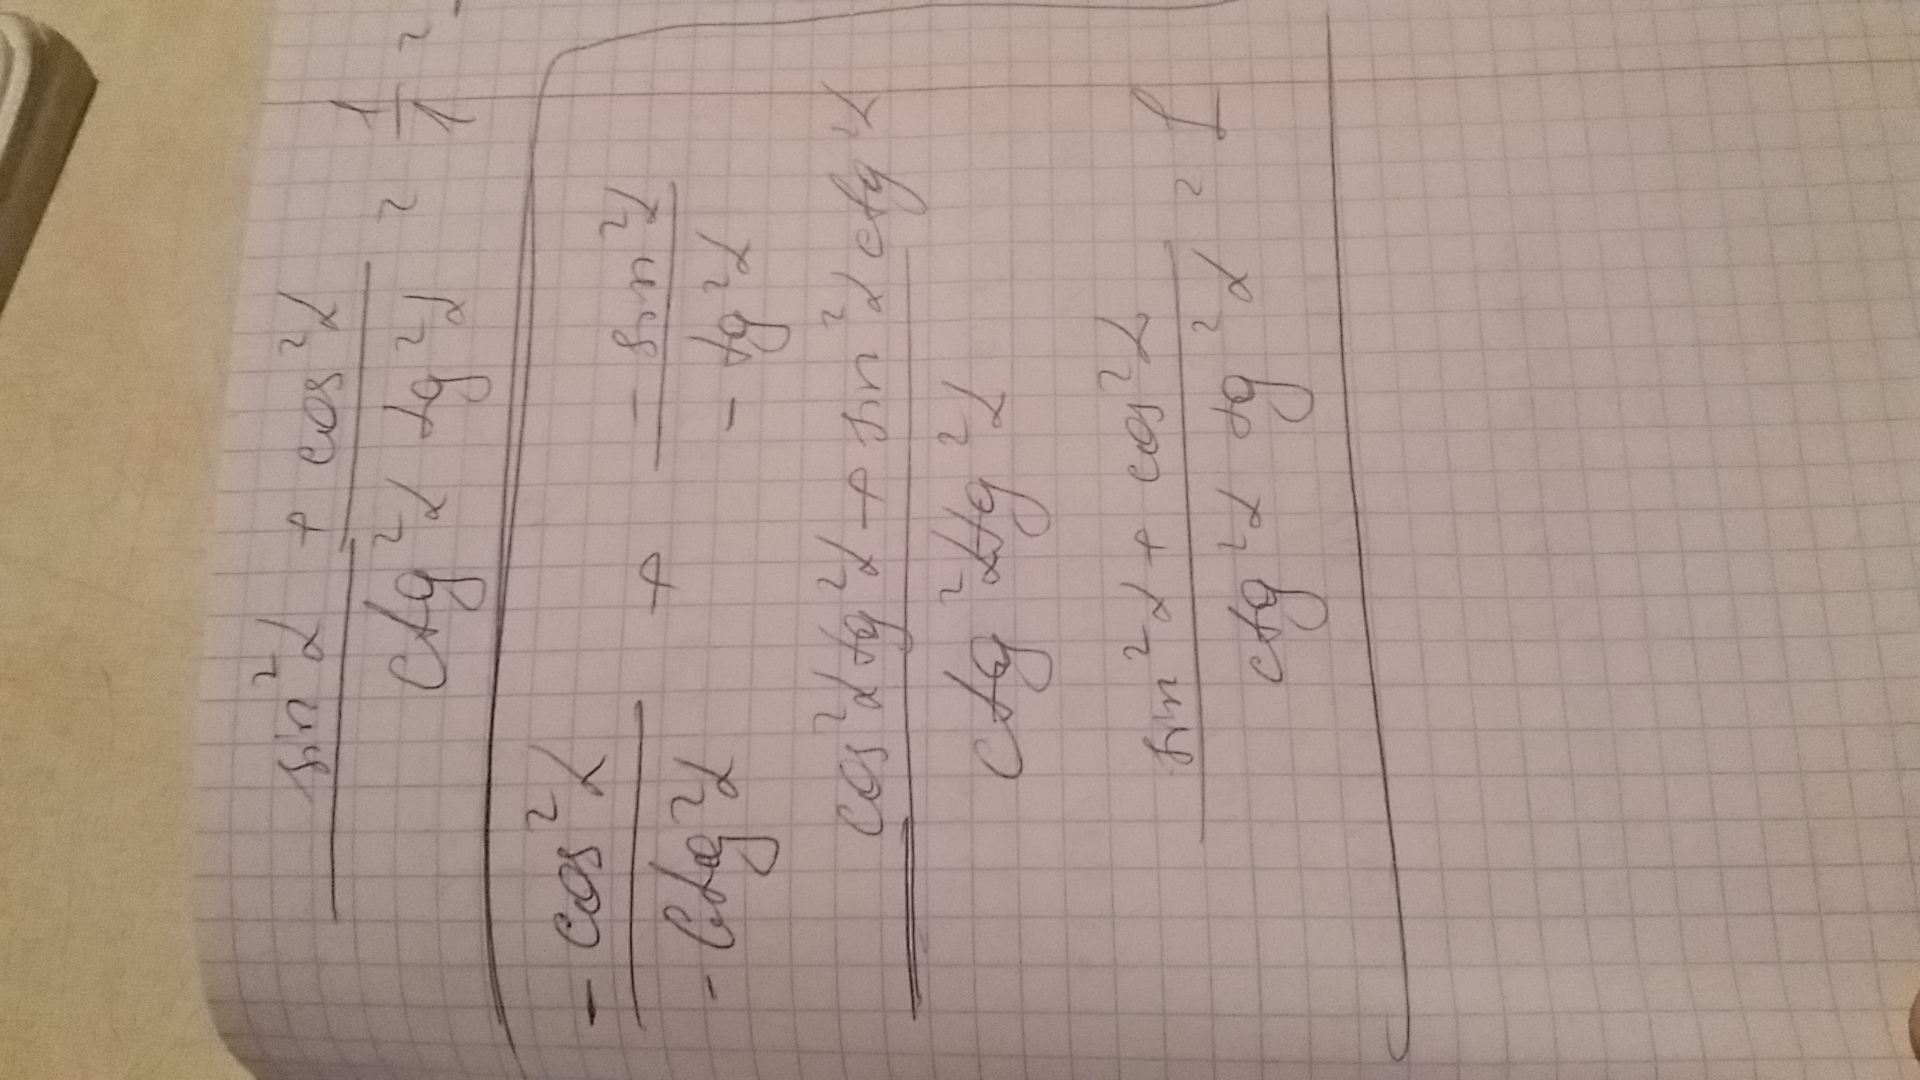 sin²α + cos²α / ctg²α tg²α = 1/1 =
- cos²α / - ctg²α + - sin²α / - tg²α
cos²α tg²α + sin²α ctg²α / ctg²α tg²α
sin²α + cos²α / ctg²α tg²α = 1